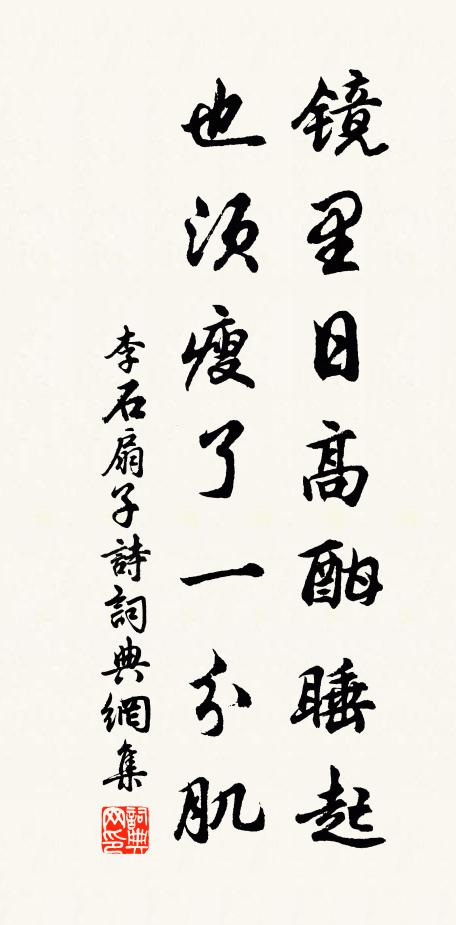 镜里日高酣睡起
也须瘦了一分肌
李石扇子詩詞典網集
詞典
网印